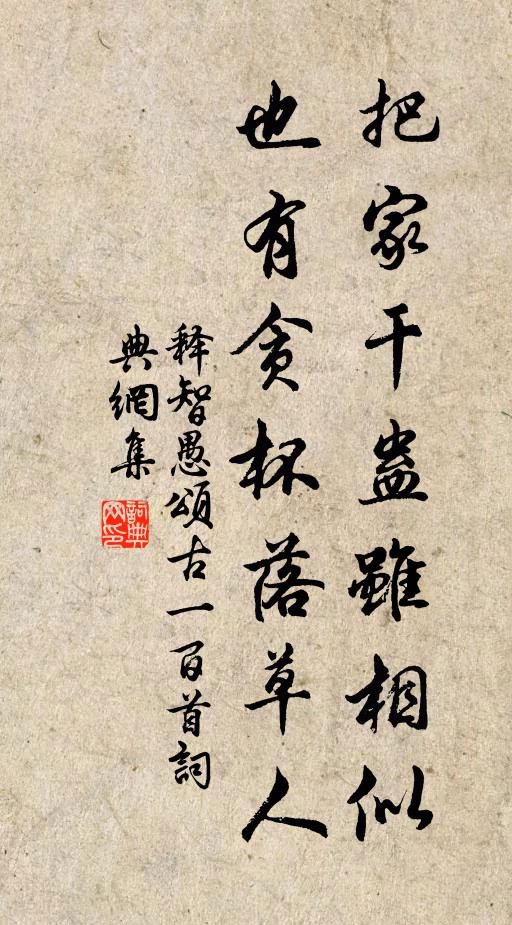 把家干蛊雖相似
也有贪杯落草人
释智愚頌古一百首詞
典網集
詞典
网印